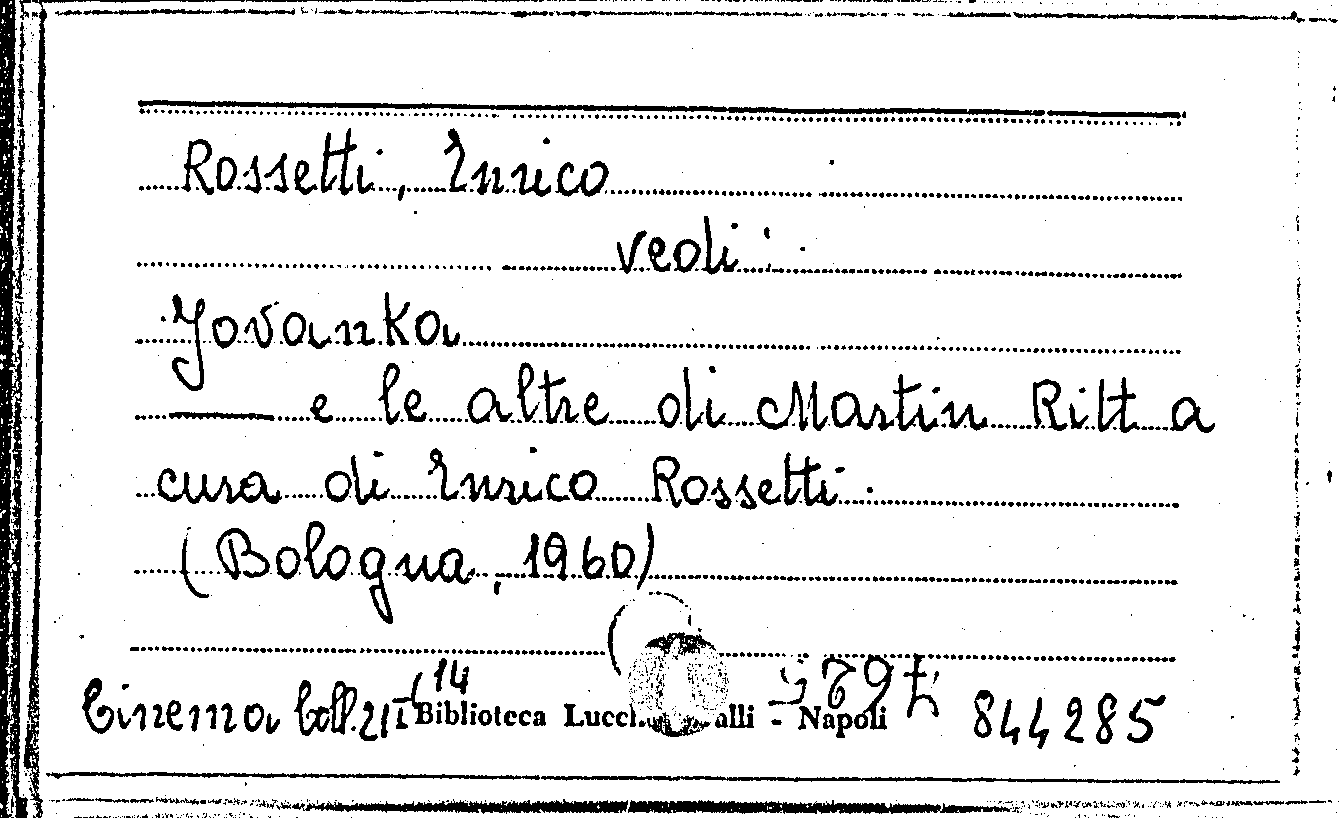 Rossetti, Enrico
vedi:
Jovanka
—— e le altre di Martin Ritt a
cura di Enrico Rossetti.
(Bologna, 1960)
Cinema Coll. 21 14 Biblioteca Lucch alli - Napoli 844285